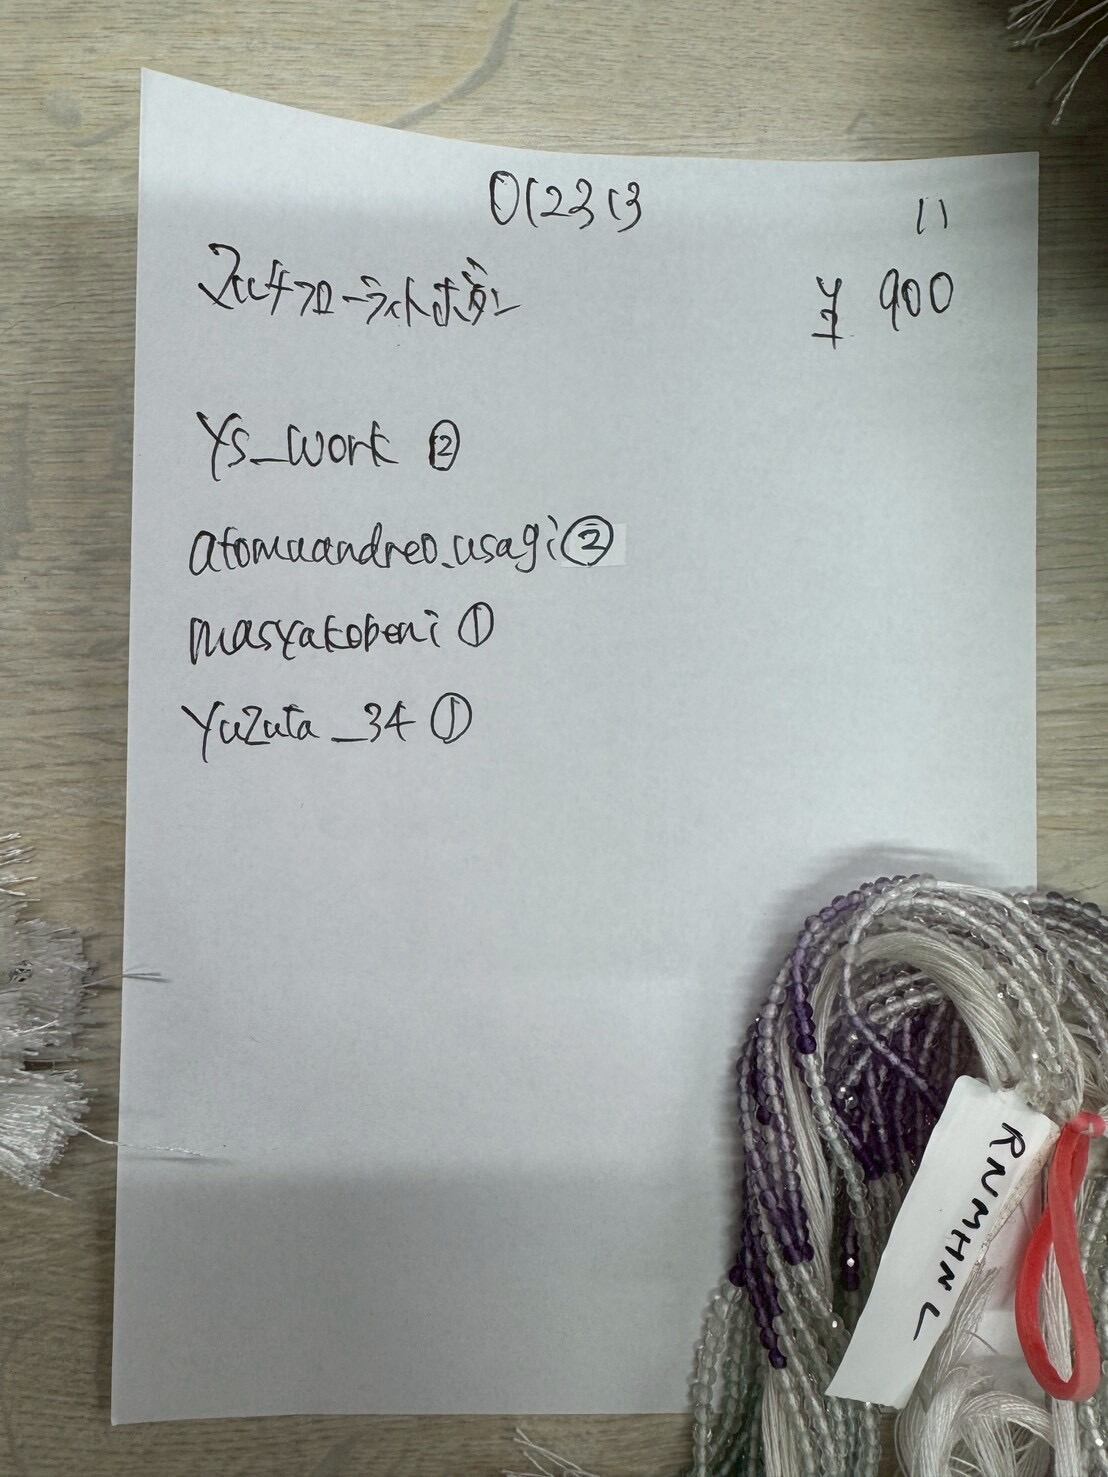 012313
11
マルチフローライトボタン
¥ 900
Ys_work ②
atomuandreo.usagi ②
masyakobeni ①
Yuzuta_34 ①
RNMHNL